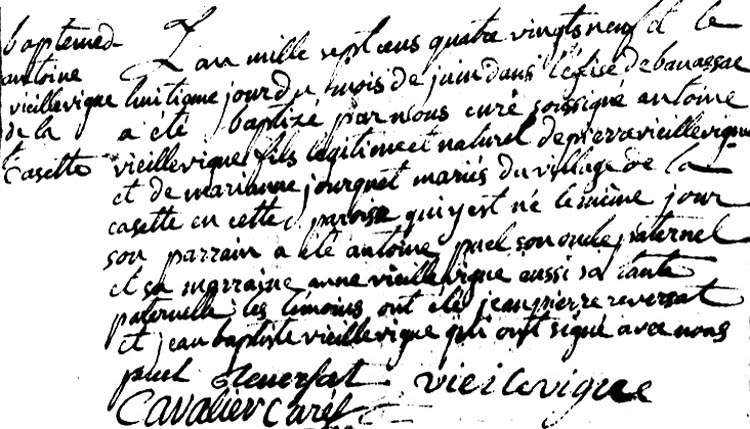 baptemed
antoine
vieillevigue
de la
Casette
L'an mille sept cens quatre vingts neuf et le
huitieme jour du mois de juin dans l'église de banassac
a été baptizé par nous curé soussigné antoine
vieillevigue fils legitime et naturel de pierre vieillevigue
et de marianne jourquet mariés du village de la
casette en cette paroisse qui y est né le même jour
son parrain a été antoine puel son oncle paternel
et sa marraine anne vieillevigue aussi sa tante
paternelle; les témoins ont été jean pierre reversat
et jean baptiste vieillevigue qui ont signé avec nous
puel Reversat vieilevigue
Cavalier Curé